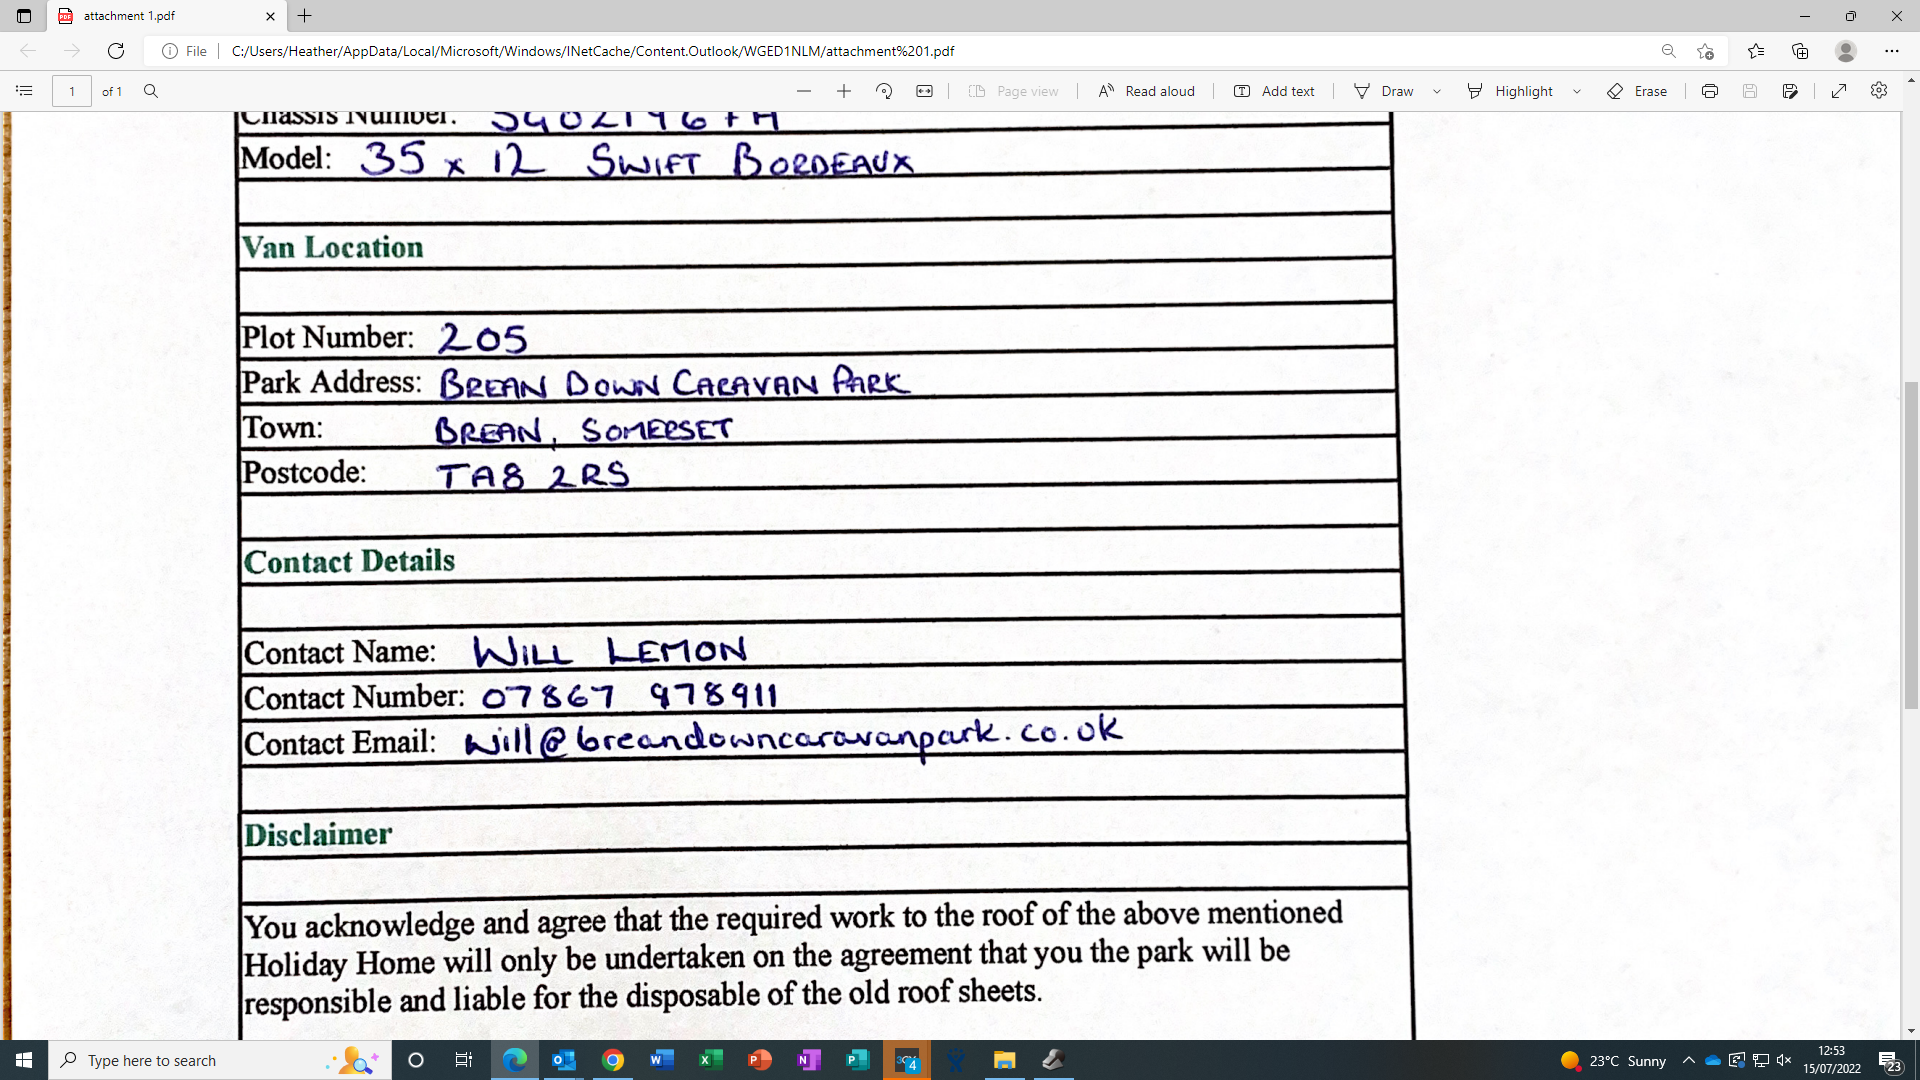 attachment 1.pdf
File
C:/Users/Heather/AppData/Local/Microsoft/Windows/INetCache/Content.Outlook/WGED1NLM/attachment%201.pdf
1 of 1
Page view
Read aloud
Add text
Draw
Highlight
Erase
Chassis Number:
Model: 35 x 12 SWIFT BORDEAUX
Van Location
Plot Number: 205
Park Address: BREAN DOWN CARAVAN PARK
Town: BREAN, SOMERSET
Postcode: TA8 2RS
Contact Details
Contact Name: WILL LEMON
Contact Number: 07867 978911
Contact Email: will@breandowncaravanpark.co.uk
Disclaimer
You acknowledge and agree that the required work to the roof of the above mentioned
Holiday Home will only be undertaken on the agreement that you the park will be
responsible and liable for the disposable of the old roof sheets.
Type here to search
4
23°C Sunny
12:53
15/07/2022
23